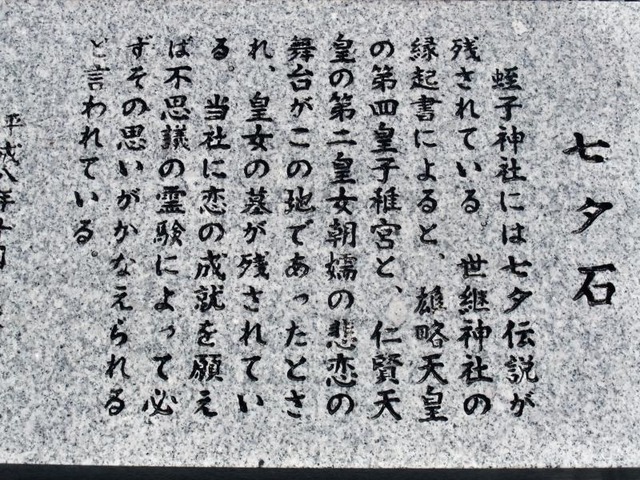 七夕石
蛭子神社には七夕伝説が
残されている。世継神社の
縁起書によると、雄略天皇
の第四皇子稚宮と、仁賢天
皇の第二皇女朝嬬の悲恋の
舞台がこの地であったとさ
れ、皇女の墓が残されてい
る。当社に恋の成就を願え
ば不思議の霊験によって必
ずその思いがかなえられる
と言われている。
平成八年十